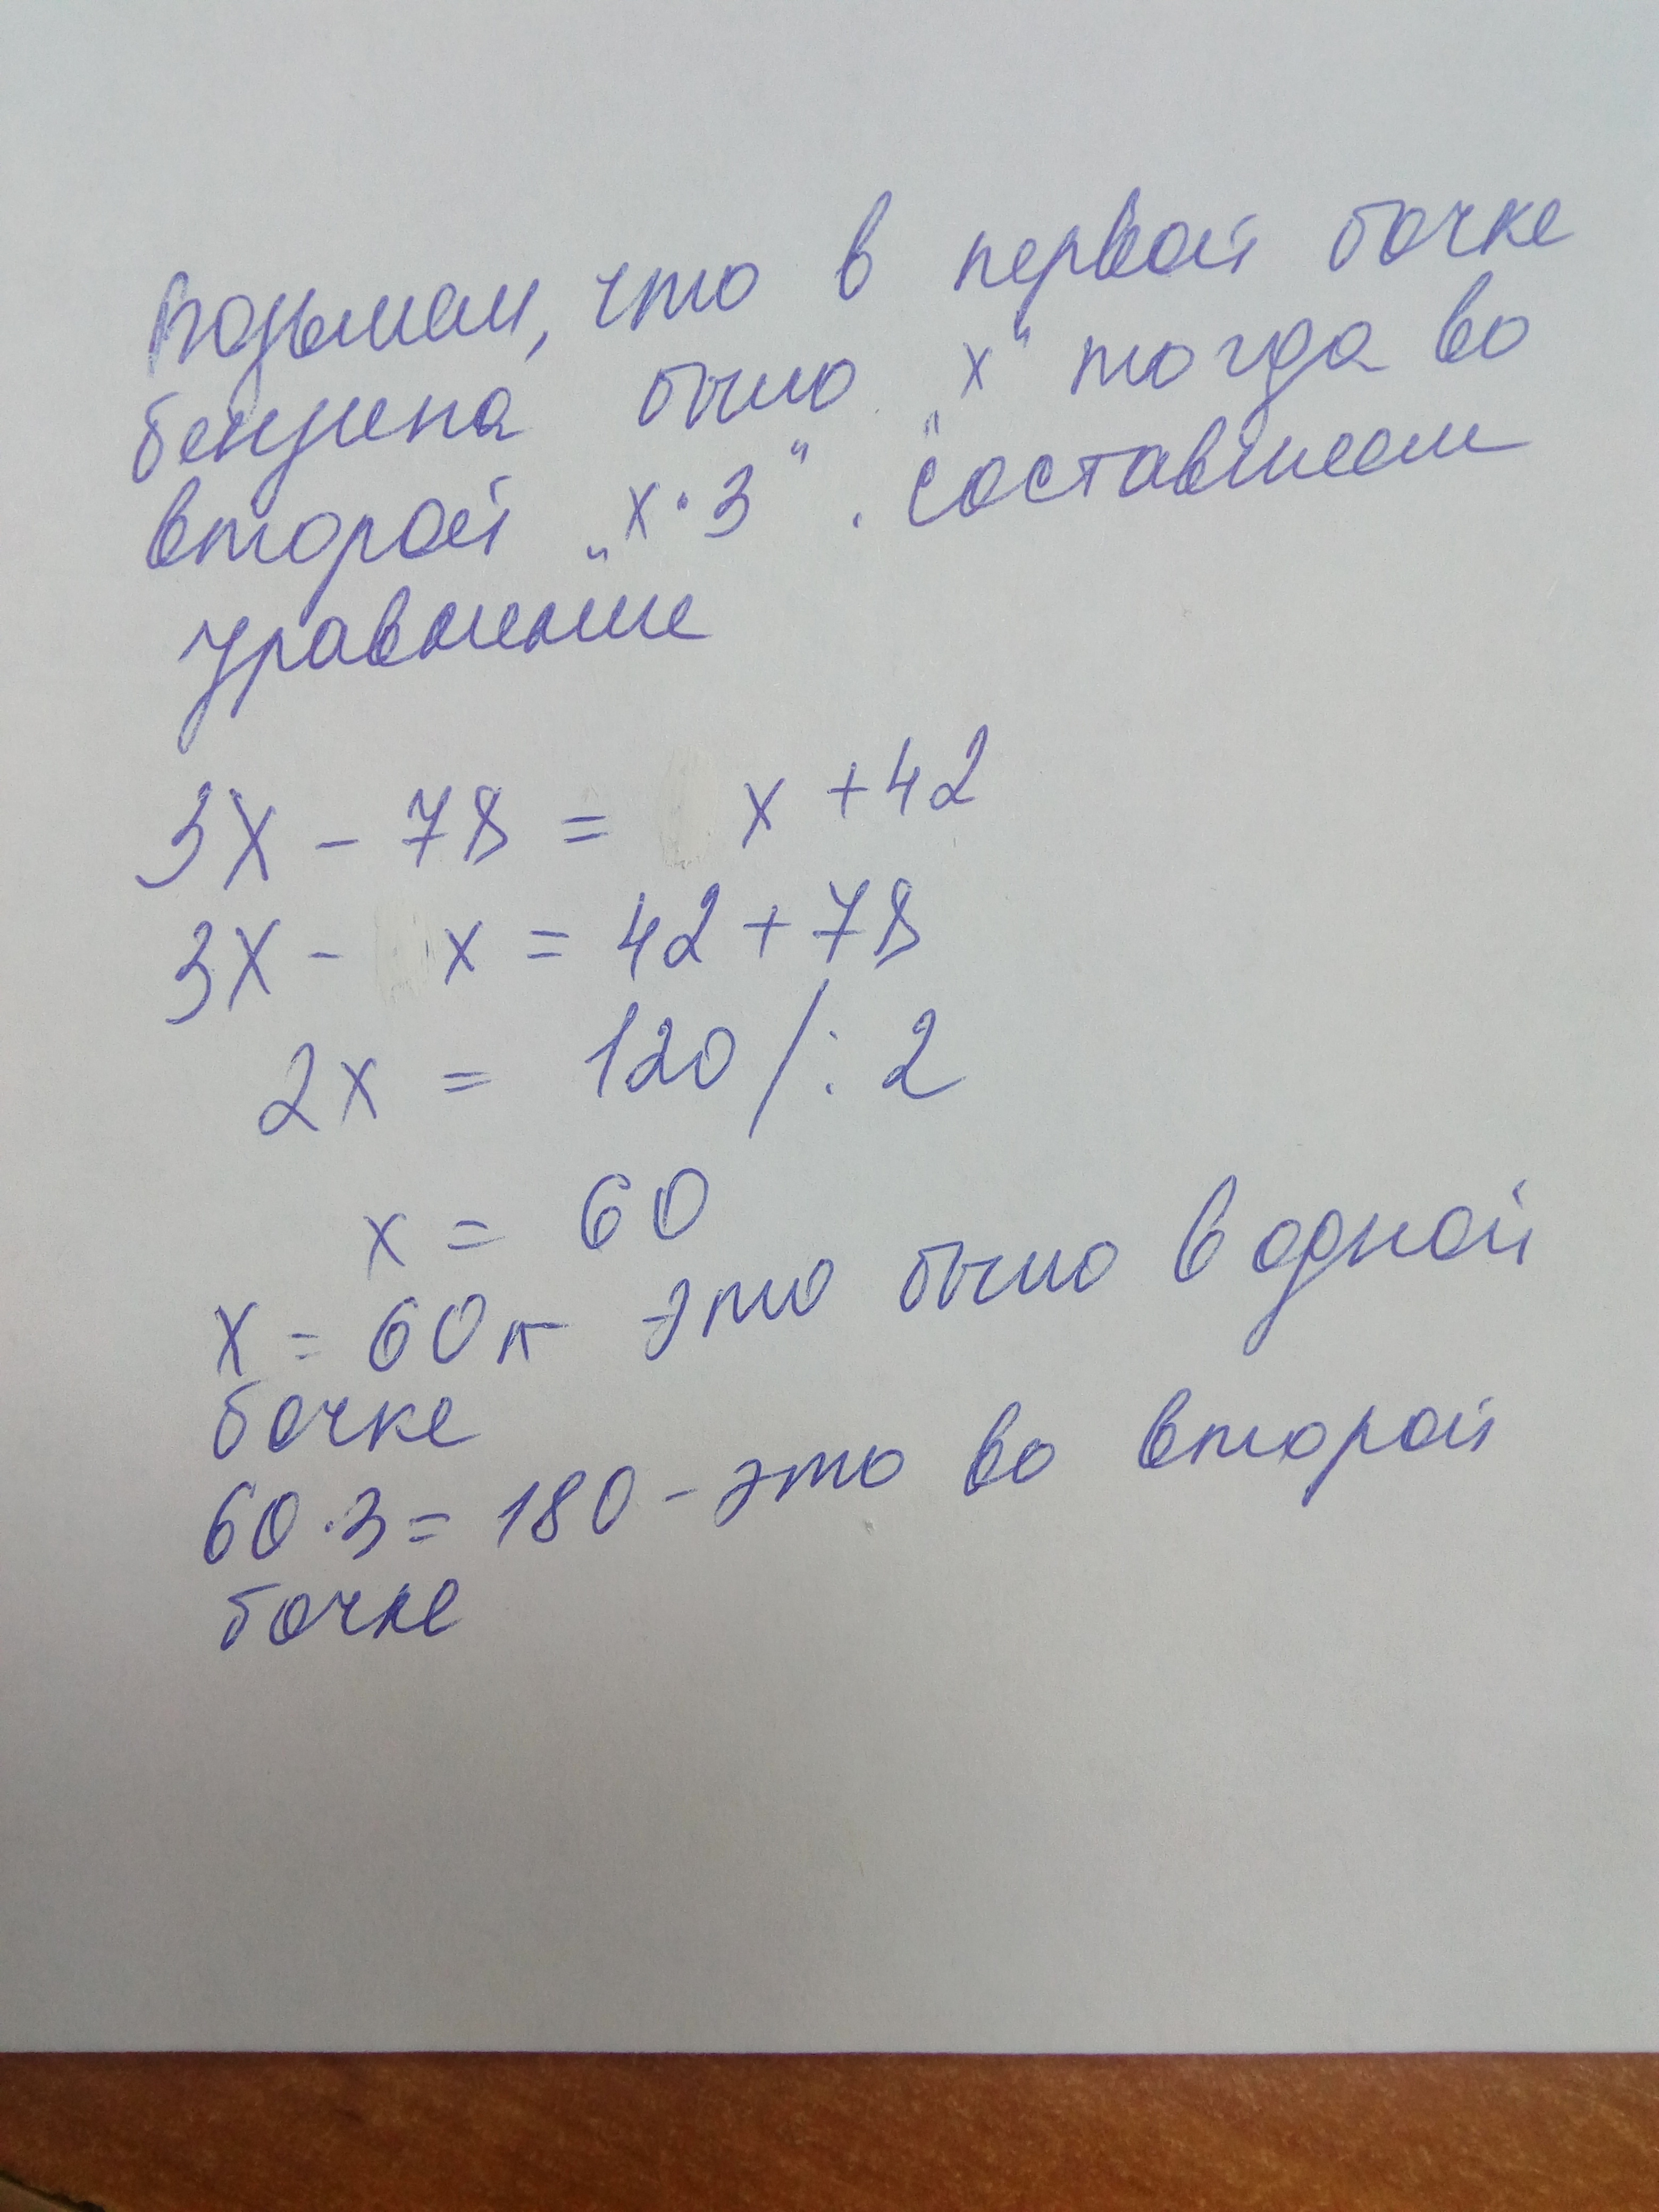 Возьмем, что в первой бочке
бензина было „х" тогда во
второй „х·3". Составляем
уравнение
3х - 78 = х + 42
3х - х = 42 + 78
2х = 120 /: 2
х = 60
х = 60л это было в одной
бочке
60·3 = 180 - это во второй
бочке